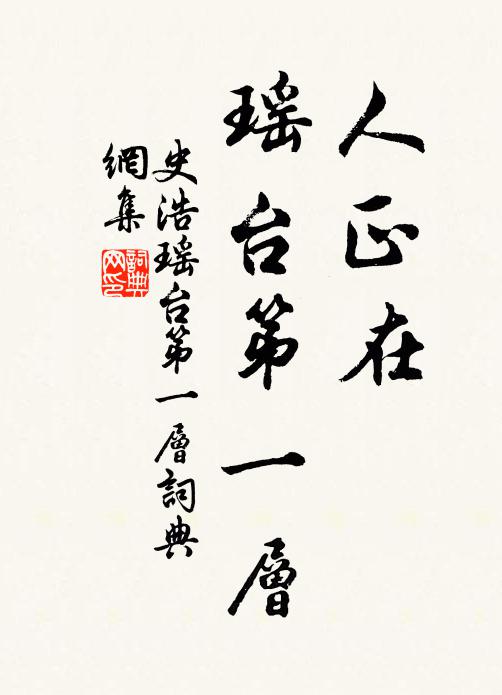 人正在
瑶台第一層
史浩瑶台第一層詞典
網集
詞典
网印